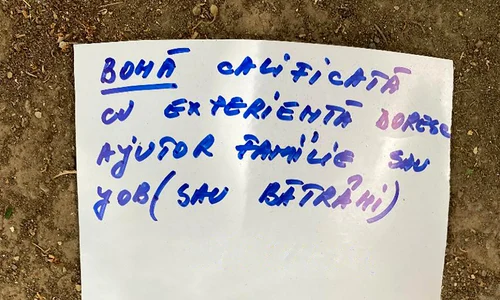 BONĂ CALIFICATĂ
CU EXPERIENTĂ DORESC
AJUTOR FAMILIE SAU
JOB (SAU BĂTRÂNI)